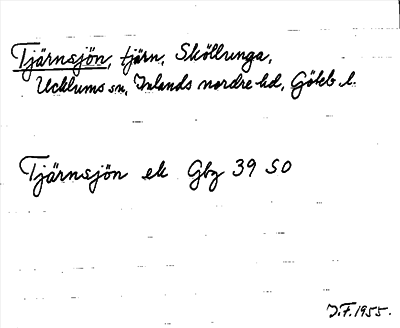 Tjärnsjön, tjärn, Sköllunga,
Ucklums sn, Inlands nordre hd, Göteb l.
Tjärnsjön ek Gbg 39 SO
J.F. 1955.